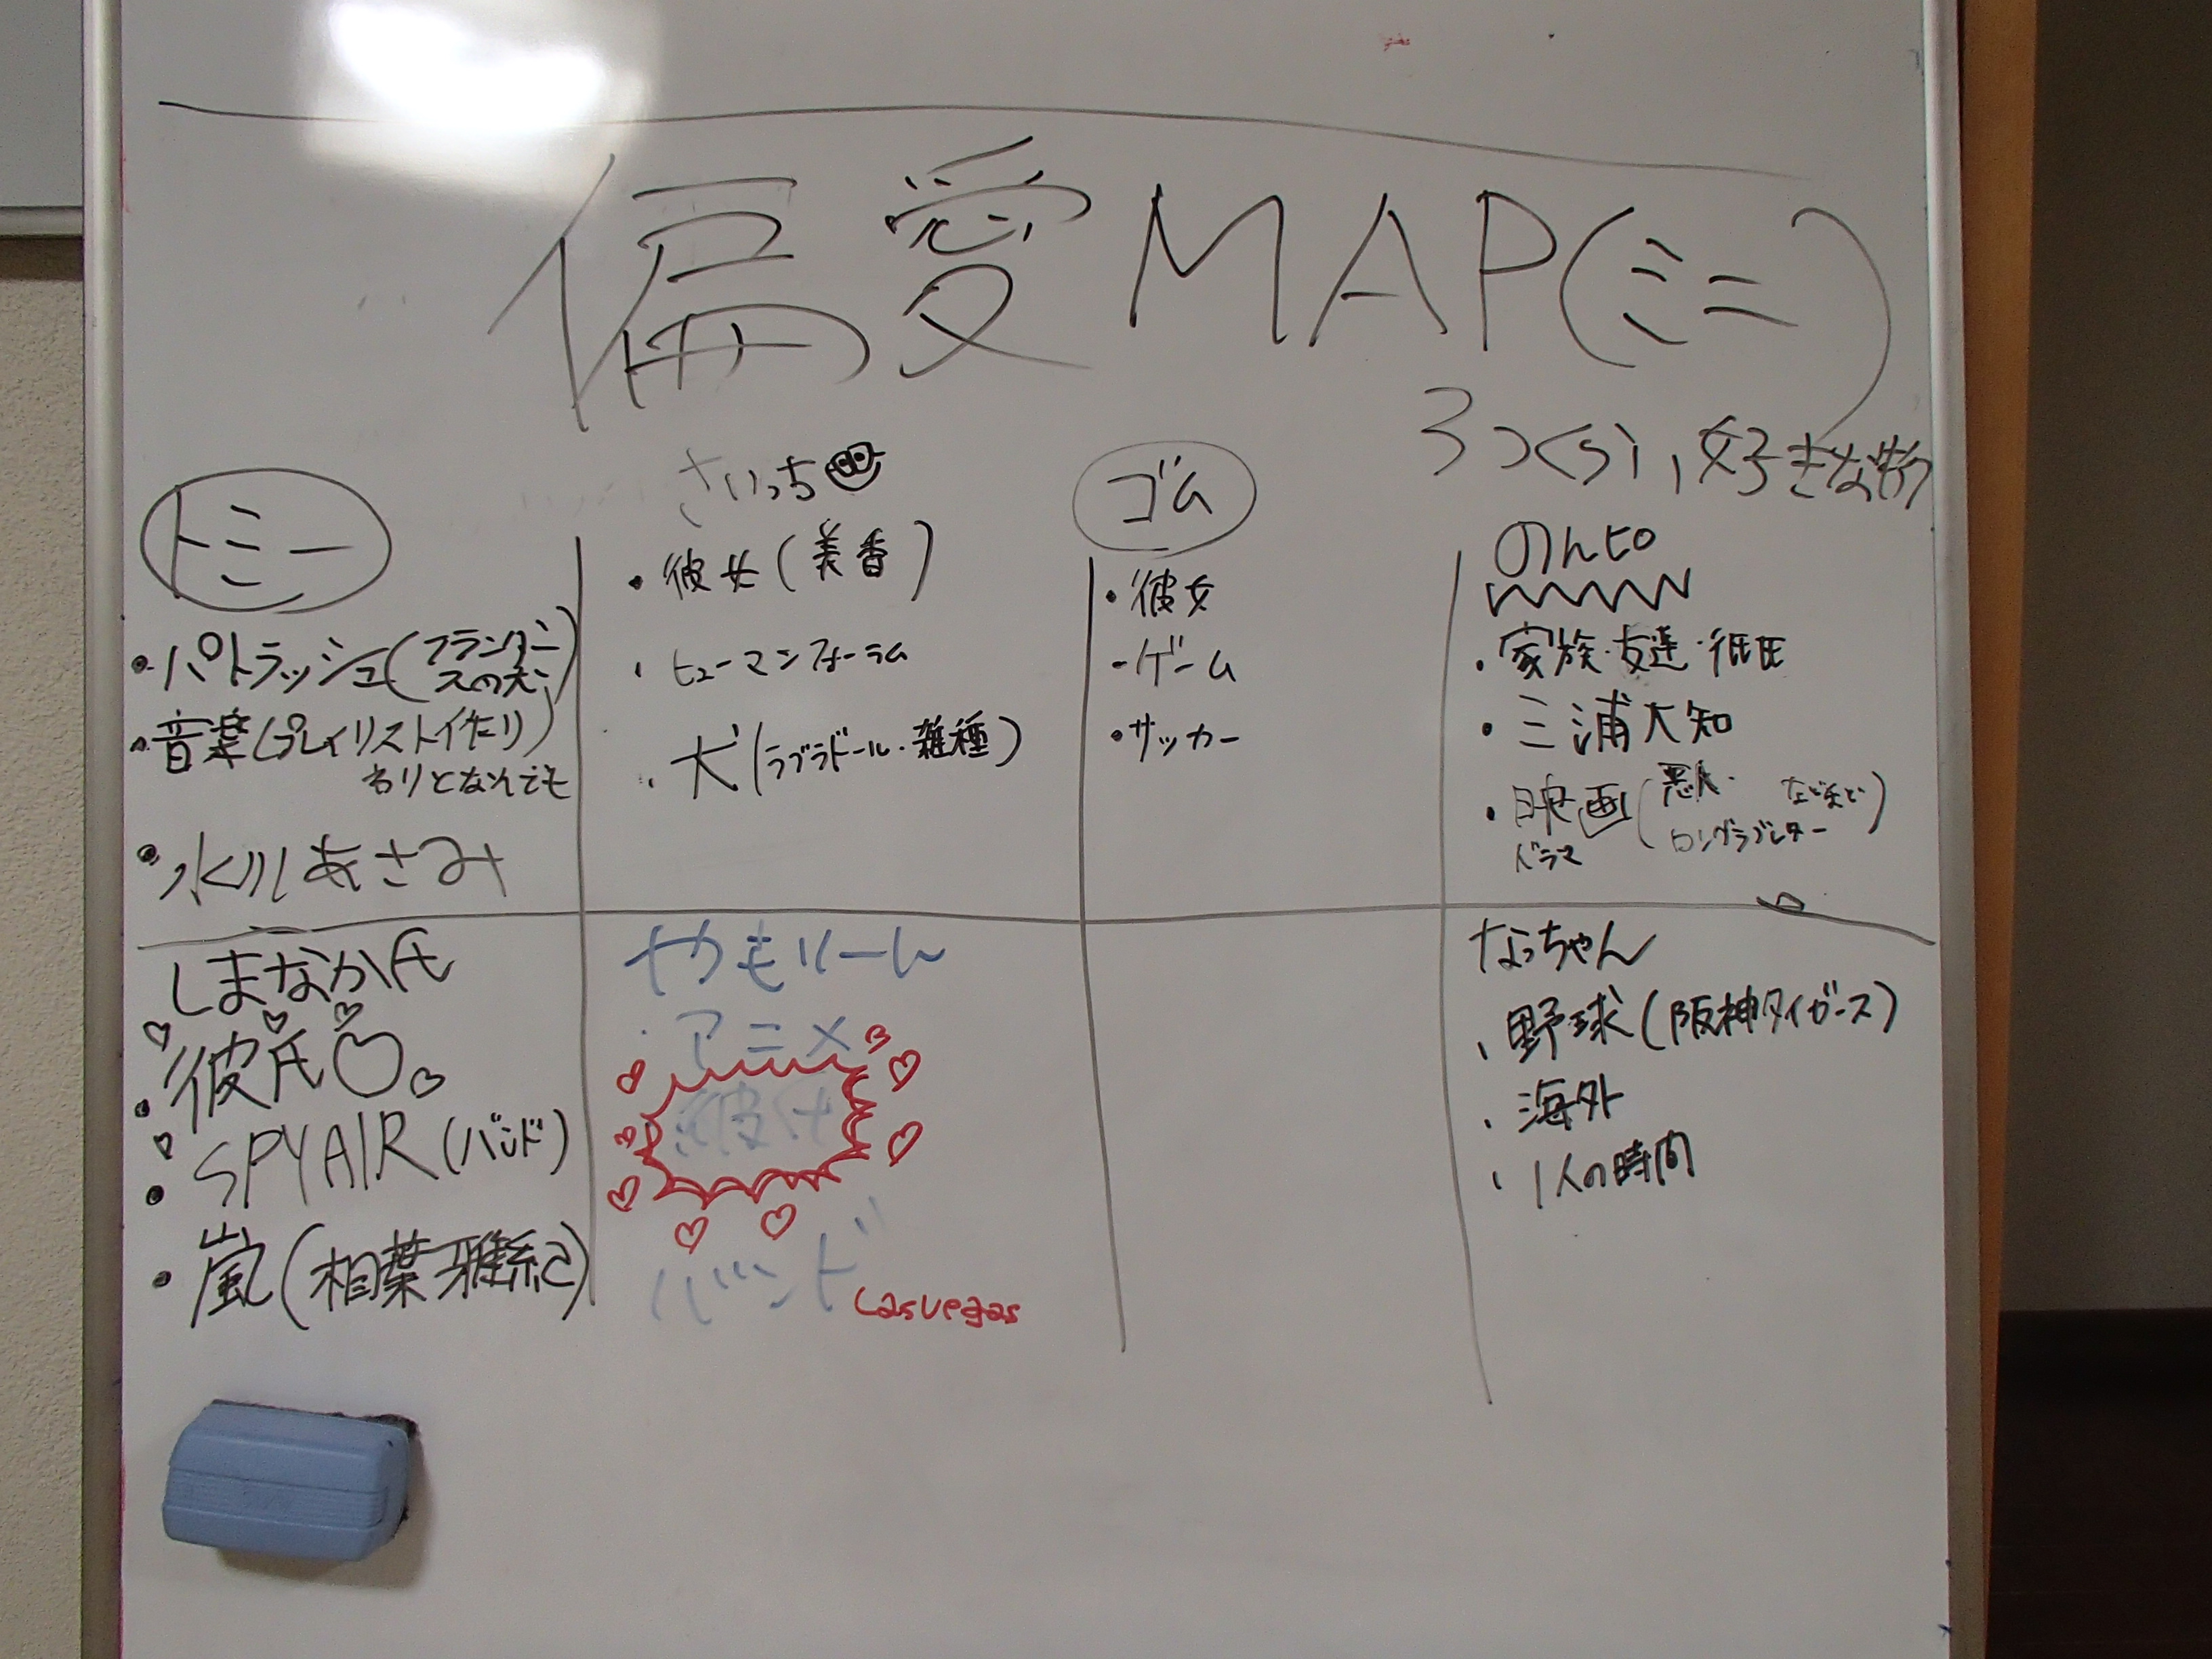 偏愛MAP(ミニ)
3つくらい,好きな物
トミー
・パトラッシュ(フランダースの犬)
・音楽(プレイリスト作たり)
わりとなんでも
・水川あさみ
さいっち
・彼女(美香)
・ヒューマンフォーラム
・犬(ラブラドール・雑種)
ゴム
・彼女
・ゲーム
・サッカー
のんピロ
・家族・友達・
・三浦大知
・映画(悪人・などなど)
ドラマ ロングラブレター
しまなか氏
・彼氏♡
・SPYAIR(バンド)
・嵐(相葉雅紀)
やもりーん
・アニメ
彼女
バンド Lasvegas
なっちゃん
・野球(阪神タイガース)
・海外
・1人の時間